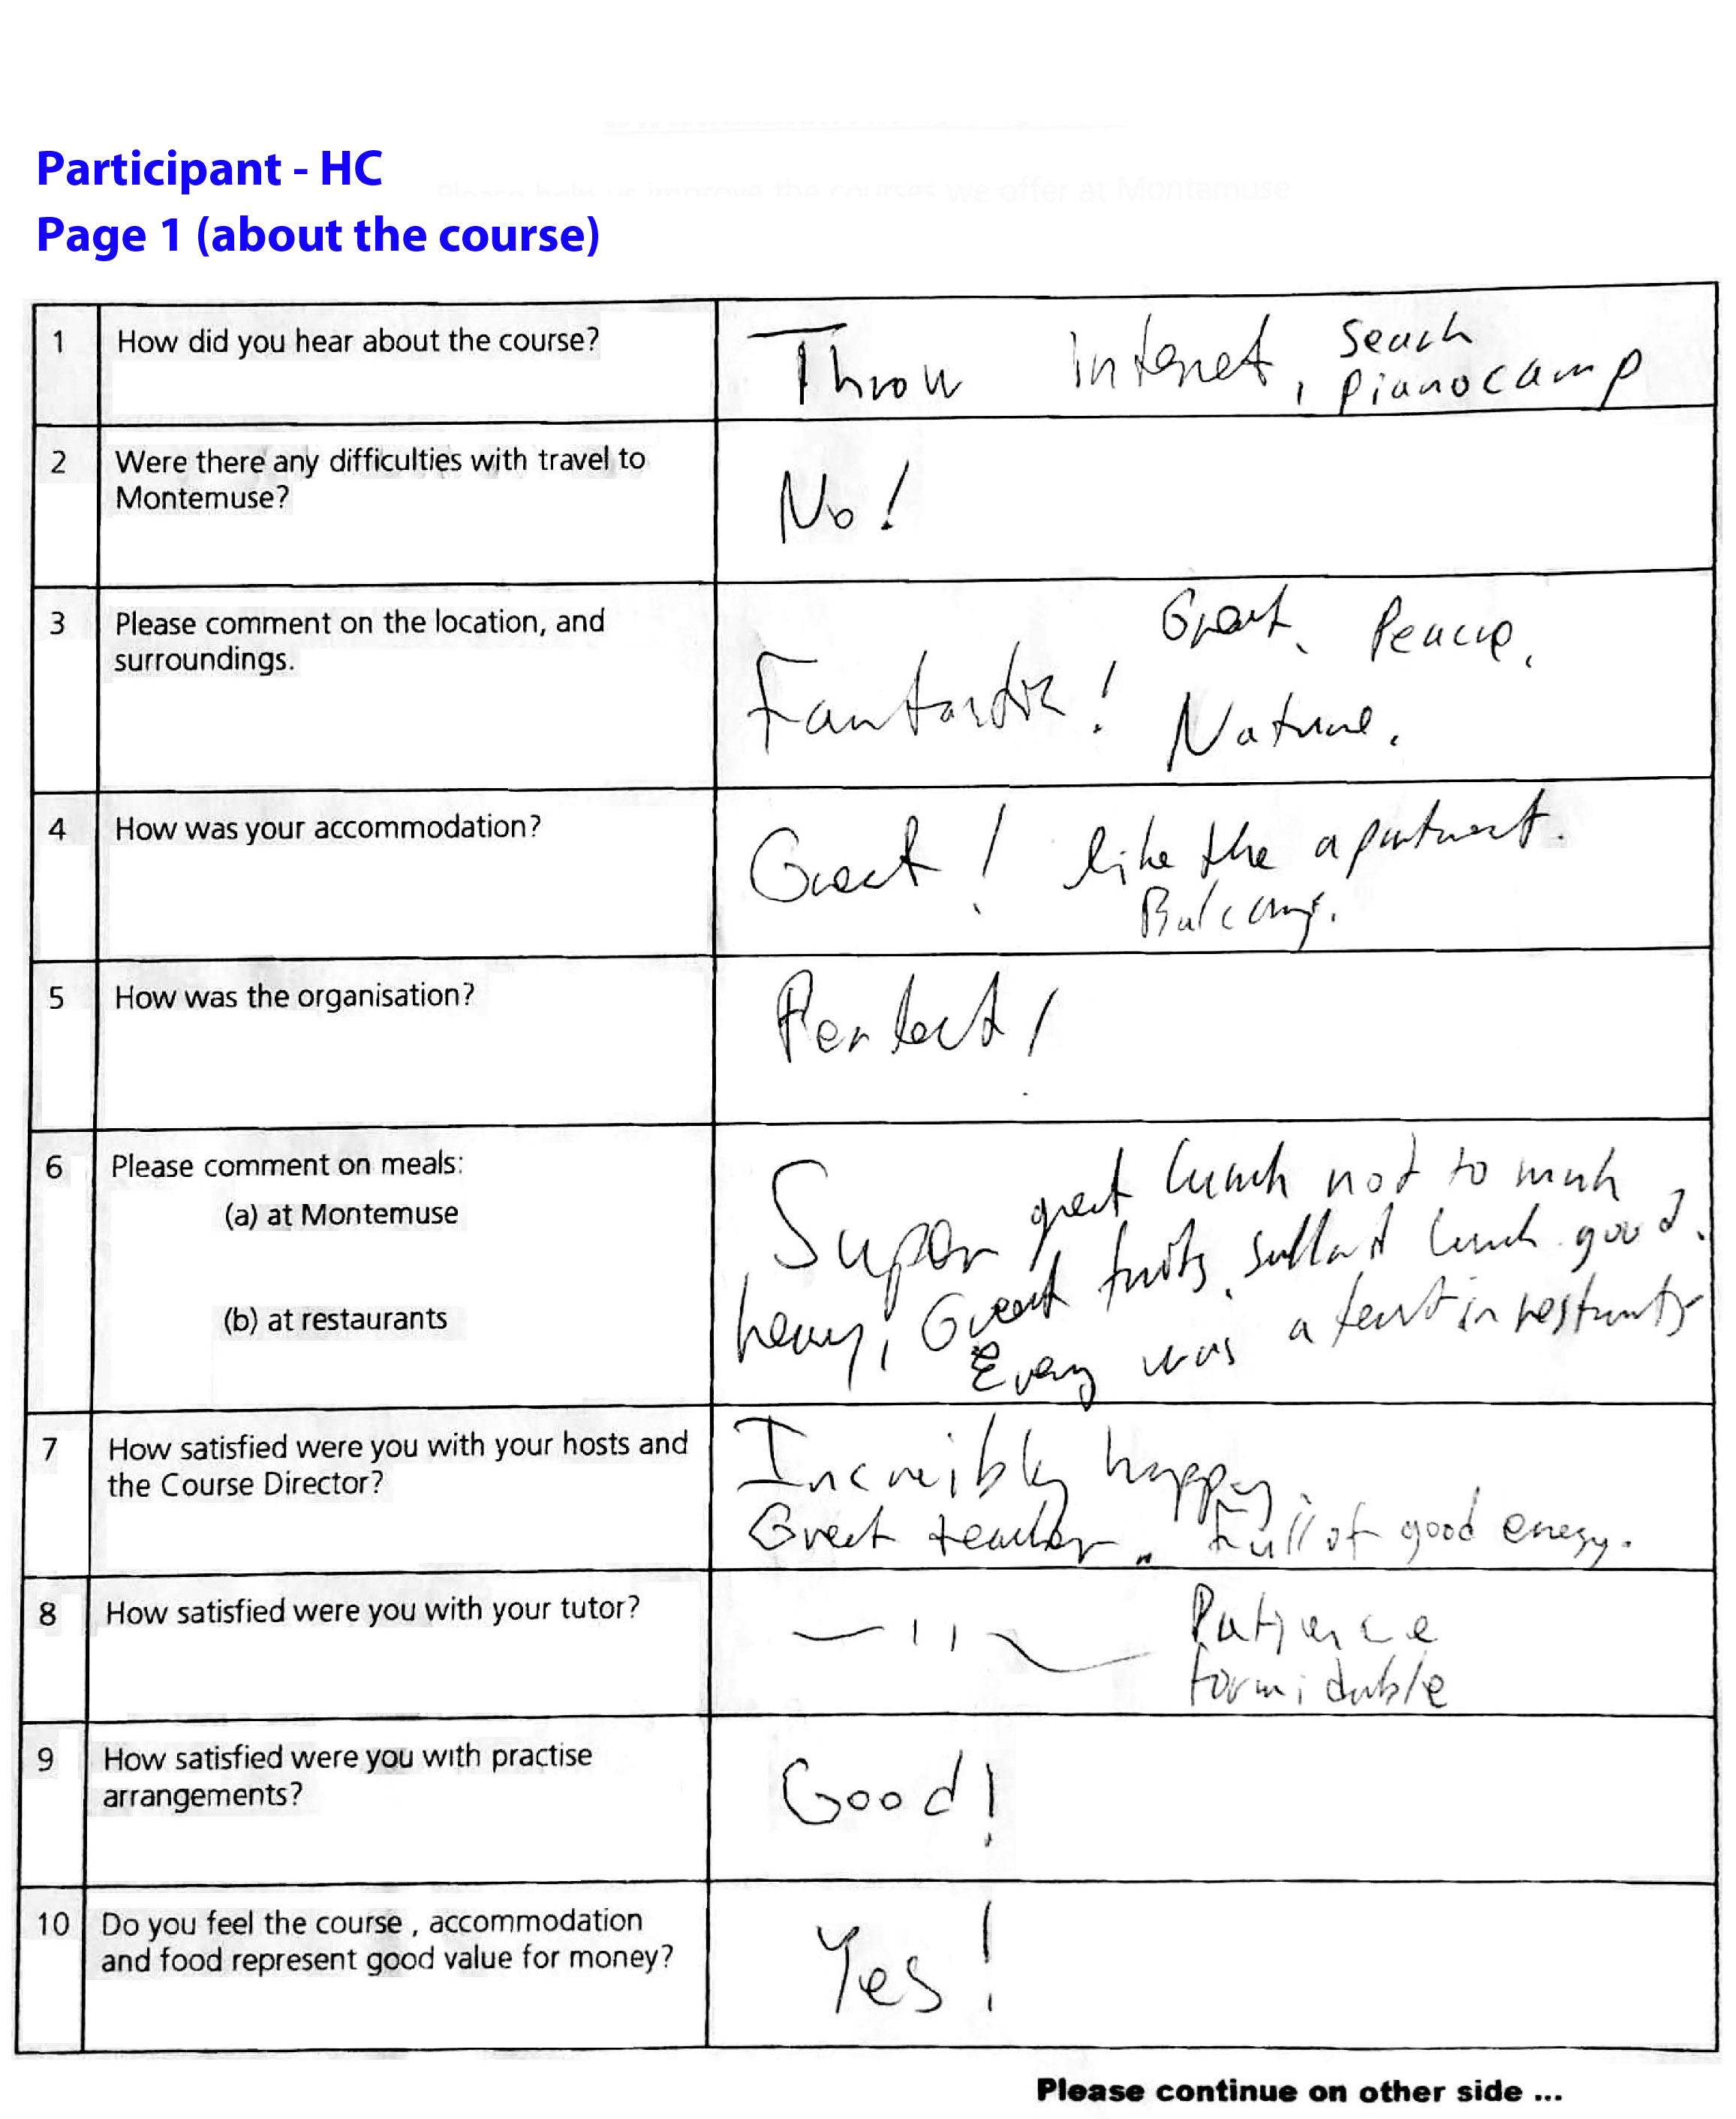 Participant - HC
Page 1 (about the course)
Please help us improve the courses we offer at Montemuse
1 How did you hear about the course? Throw internet, seach
pianocamp
2 Were there any difficulties with travel to
Montemuse?
No!
3 Please comment on the location, and
surroundings.
Fantastic! Great. Peace.
Nature.
4 How was your accommodation? Great! like the apartment.
Balcony.
5 How was the organisation? Perfect!
6 Please comment on meals:
(a) at Montemuse
(b) at restaurants
Super great lunch not to much
heavy, Great fruits, sallad lunch good.
Every was a feast in restaurants
7 How satisfied were you with your hosts and
the Course Director?
Increibly happy
Great teacher. Full of good energy.
8 How satisfied were you with your tutor? — 11 — Patience
formidable
9 How satisfied were you with practise
arrangements?
Good!
10 Do you feel the course , accommodation
and food represent good value for money?
Yes!
Please continue on other side ...